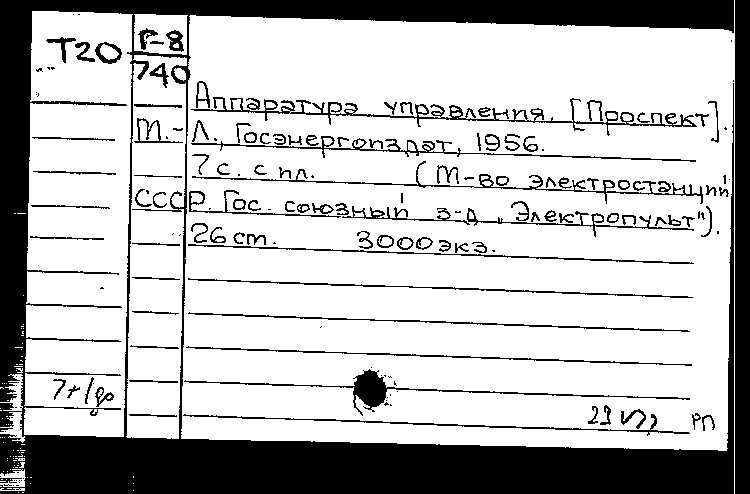 Т20 Г-8
740
Аппаратура управления. [Проспект].
М.-Л., Госэнергоиздат, 1956.
7 с. с ил. (М-во электростанций
СССР. Гос. союзный з-д „Электропульт").
26 ст. 3000 экз.
РП